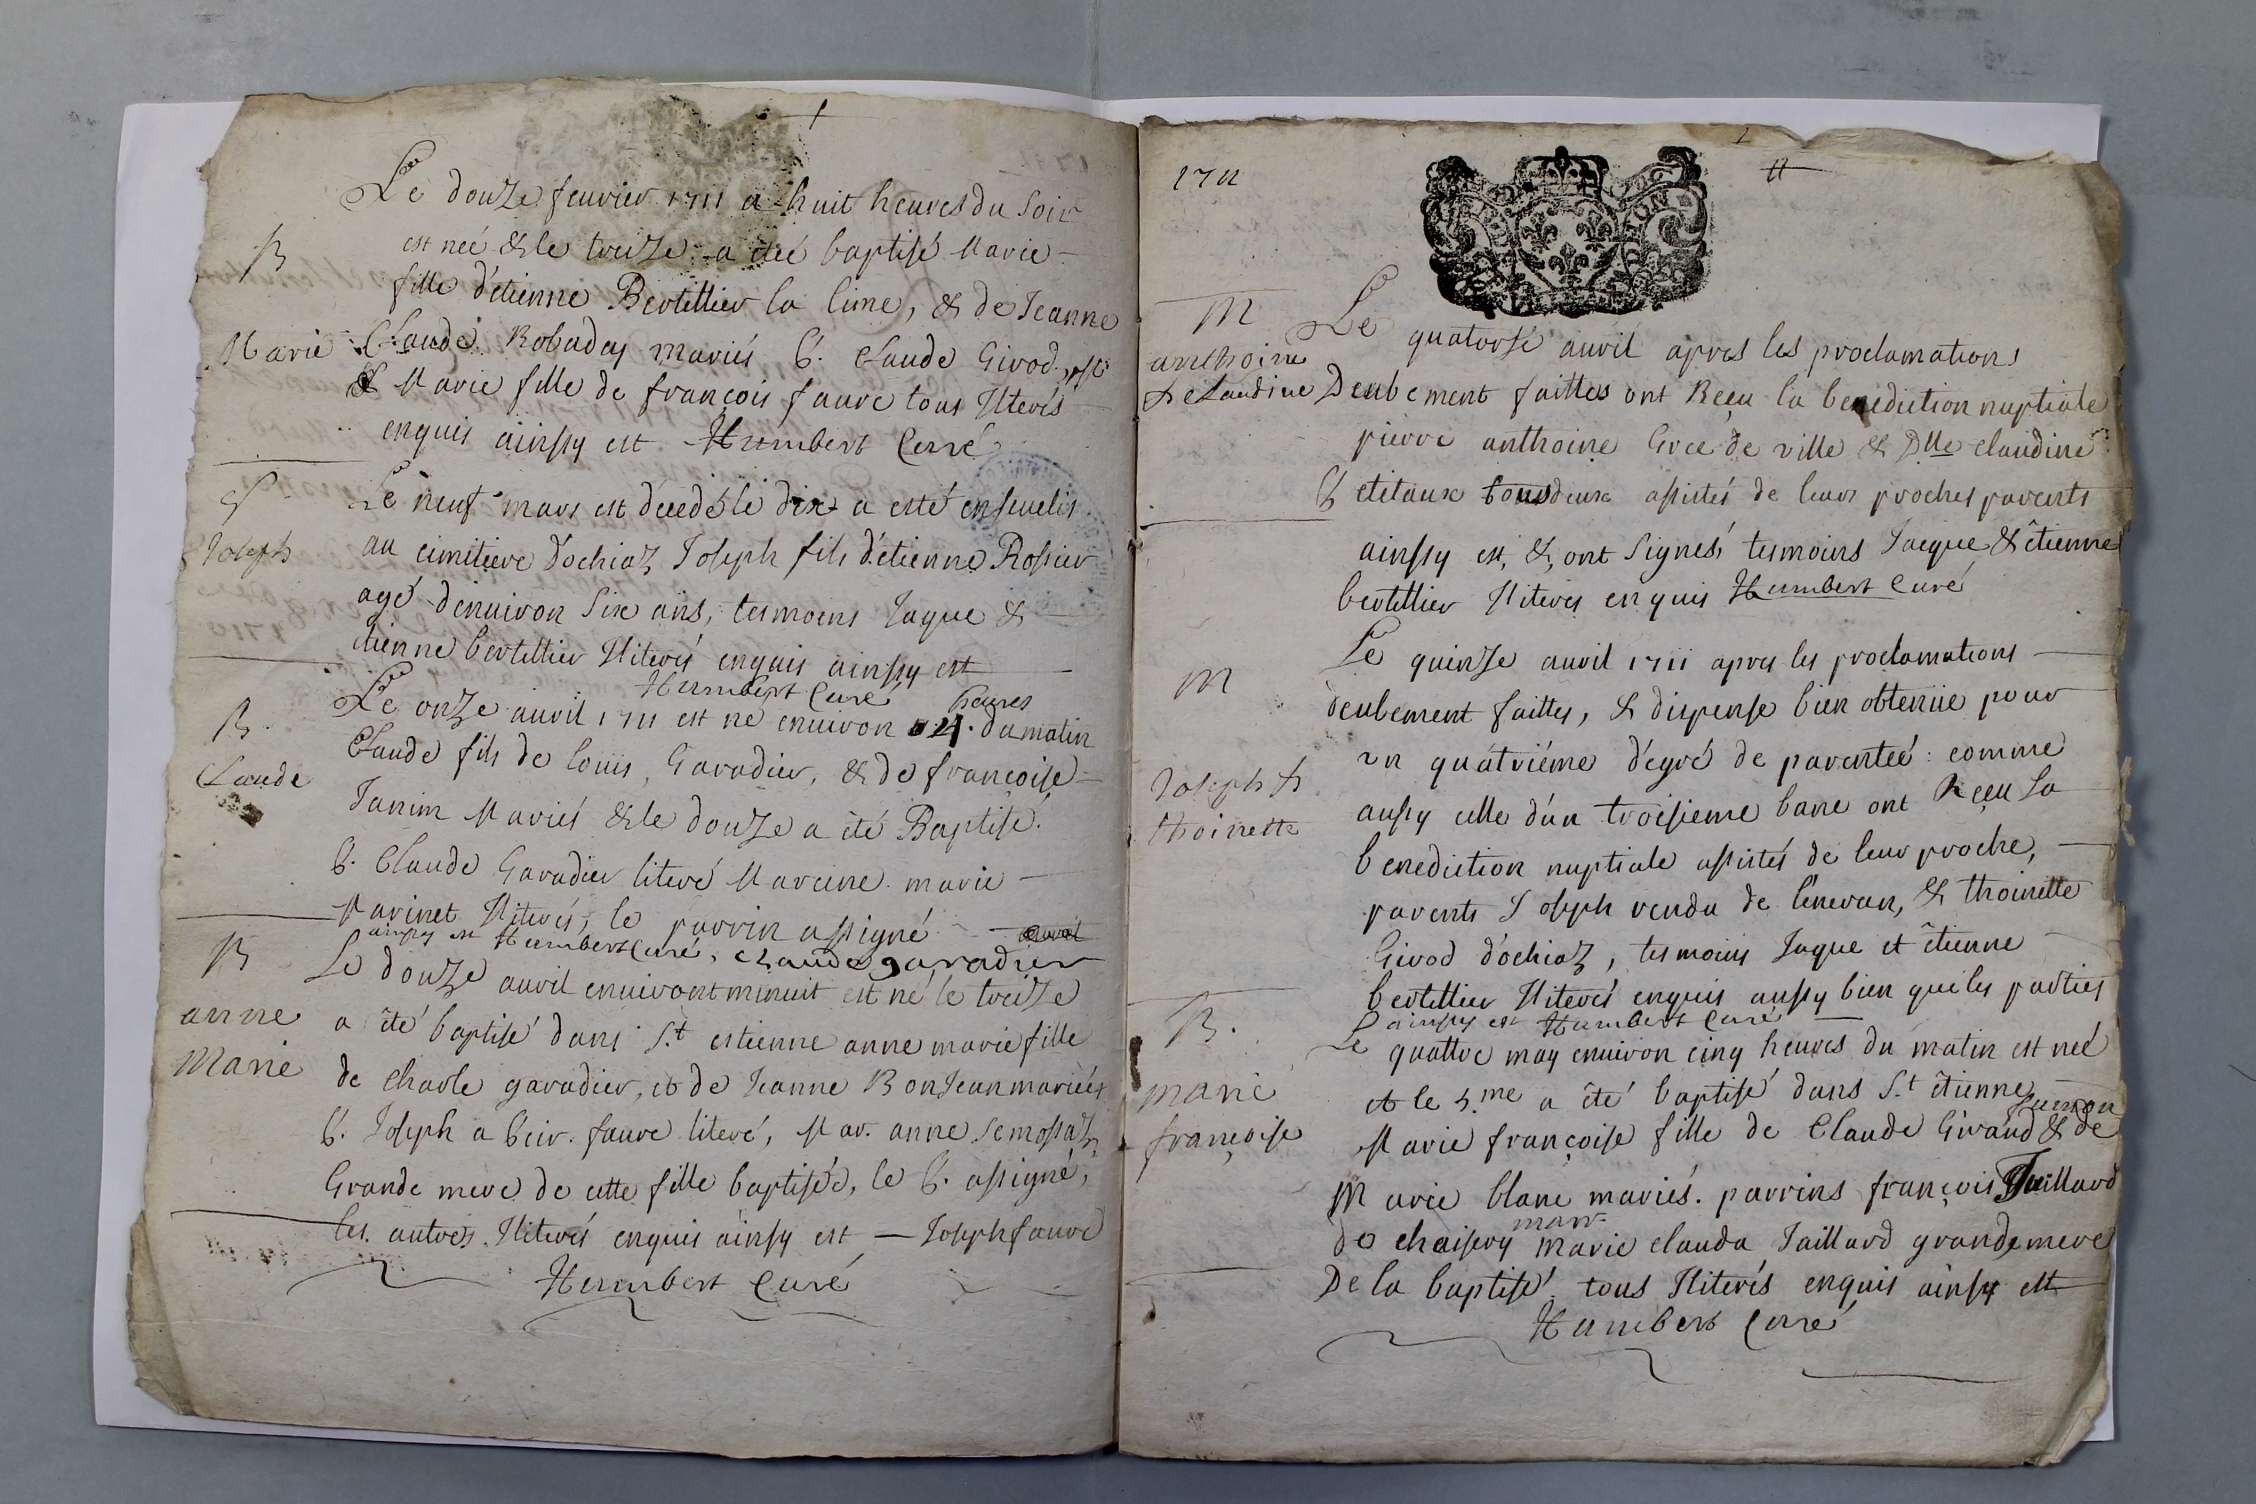 1
Le douze feuvier 1711 a huit heures du Soir
B
est neé & le treize a été baptisé Marie
fille d'etienne Bertillier la lime, & de Jeanne
Marie
Claude Robadey mariés P. Claude Girod
& Marie fille de françois faure tous Iliterés
enquis ainssy est Humbert Curé
S
Joseph
Le neuf mars est décedé le dix a esté enseuelis
au cimitiere d'ochiaz Joseph fils d'etienne Rossier
agé d'enuiron Six ans, tesmoins Jaque &
etienne bertillier Iliterés enquis ainssy est
Humbert Curé
B.
Claude
heures
Le onze auvil 1711 est né enuiron 4. du matin
Claude fils de louis Garadier, & de françoise
Janin Mariés & le douze a été Baptisé.
P. Claude Garadier literé Mareine marie
Marinet Iliterés, le parrin assigné
ainssy est Humbert Curé, claude garadier
B
anne
Marie
Le douze auvil enuiront minuit est né le treize
a été baptisé dans S.t estienne anne marie fille
de charle garadier, et de Jeanne Bonjean mariés
P. Joseph a feu faure literé, Mar. anne Semossaz
Grande mere de cette fille baptiséé, le P. assigné,
les autres Iliterés enquis ainsy est — Joseph faure
Humbert Curé
2
1711
11
M
anthoine
& Claudine
Le quatorse auvil apres les proclamations
Deubement faittes ont Reçu la benediction nuptiale
pierre anthoine Gree de ville & Dlle claudine
P etitaux tous deux assistés de leurs proches parents
ainssy est, & ont Signés, tesmoins Jacque & étienne
bertillier Iliteres enquis Humbert Curé
M
Joseph &
thoinette
Le quinze auvil 1711 apres les proclamations
deubement faittes, & dispense bien obtenüe pour
un quátriéme dégré de parenteé: comme
aussy celle d'un troisieme banc ont Reçu La
benediction nuptiale assistés de leur proche,
parents Joseph vendu de lénevan, & thoinette
Girod d'ochiaz, tesmoins Jaque et étienne
bertillier Iliterés enquis aussy bien que les parties
ainssy est Humbert Curé
B.
marie
françoise
Le quattre may enuiron cinq heures du matin est neé
et le 5.me a été baptisé dans S.t étienne
Marie françoise fille de Claude Girand & de
Marie blanc mariés. parrins françois Juillard
marr.
de chaisery marie clauda Jaillard grandemere
De la baptisé tous Iliterés enquis ainsy est
Humbert Curé